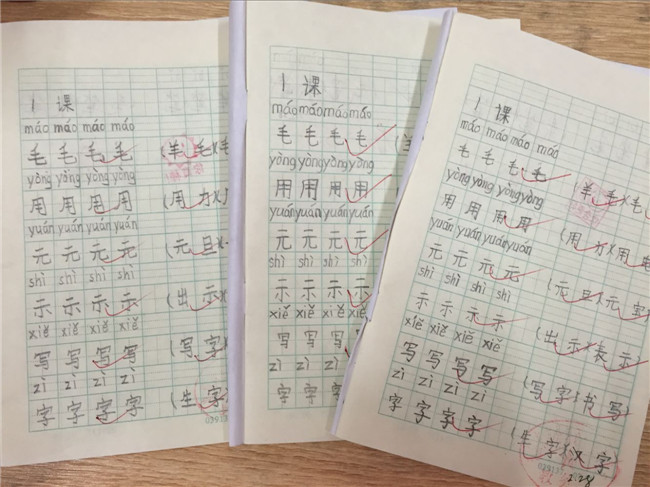 1 课
máo máo máo máo
毛 毛 毛 毛 (羊 毛)(毛
yòng yòng yòng yòng
用 用 用 用 (用 力)(
yuán yuán yuán yuán
元 元 元 元 (元 旦)(
shì shì shì shì
示 示 示 示 (出 示)(
xiě xiě xiě xiě
写 写 写 写 (写 字)(
zì zì zì zì
字 字 字 字 (生 字)(
1 课
máo máo máo máo
毛 毛 毛 毛 (
yòng yòng yòng yòng
用 用 用 用 (
yuán yuán yuán yuán
元 元 元 元 (
shì shì shì shì
示 示 示 示 (
xiě xiě xiě xiě
写 写 写 写 (
zì zì zì zì
字 字 字 字 (
1 课
máo máo máo máo
毛 毛 毛 毛 (羊 毛)(毛
yòng yòng yòng yòng
用 用 用 用 (用 力)(用 电
yuán yuán yuán yuan
元 元 元 元 (元 旦)(元 宝
shì shì shì shì
示 示 示 示 (出 示)(表 示)
xiě xiě xiě xiě
写 写 写 写 (写 字)(书 写)
zì zì zì zì
字 字 字 字 (生 字)(汉 字)
2.28